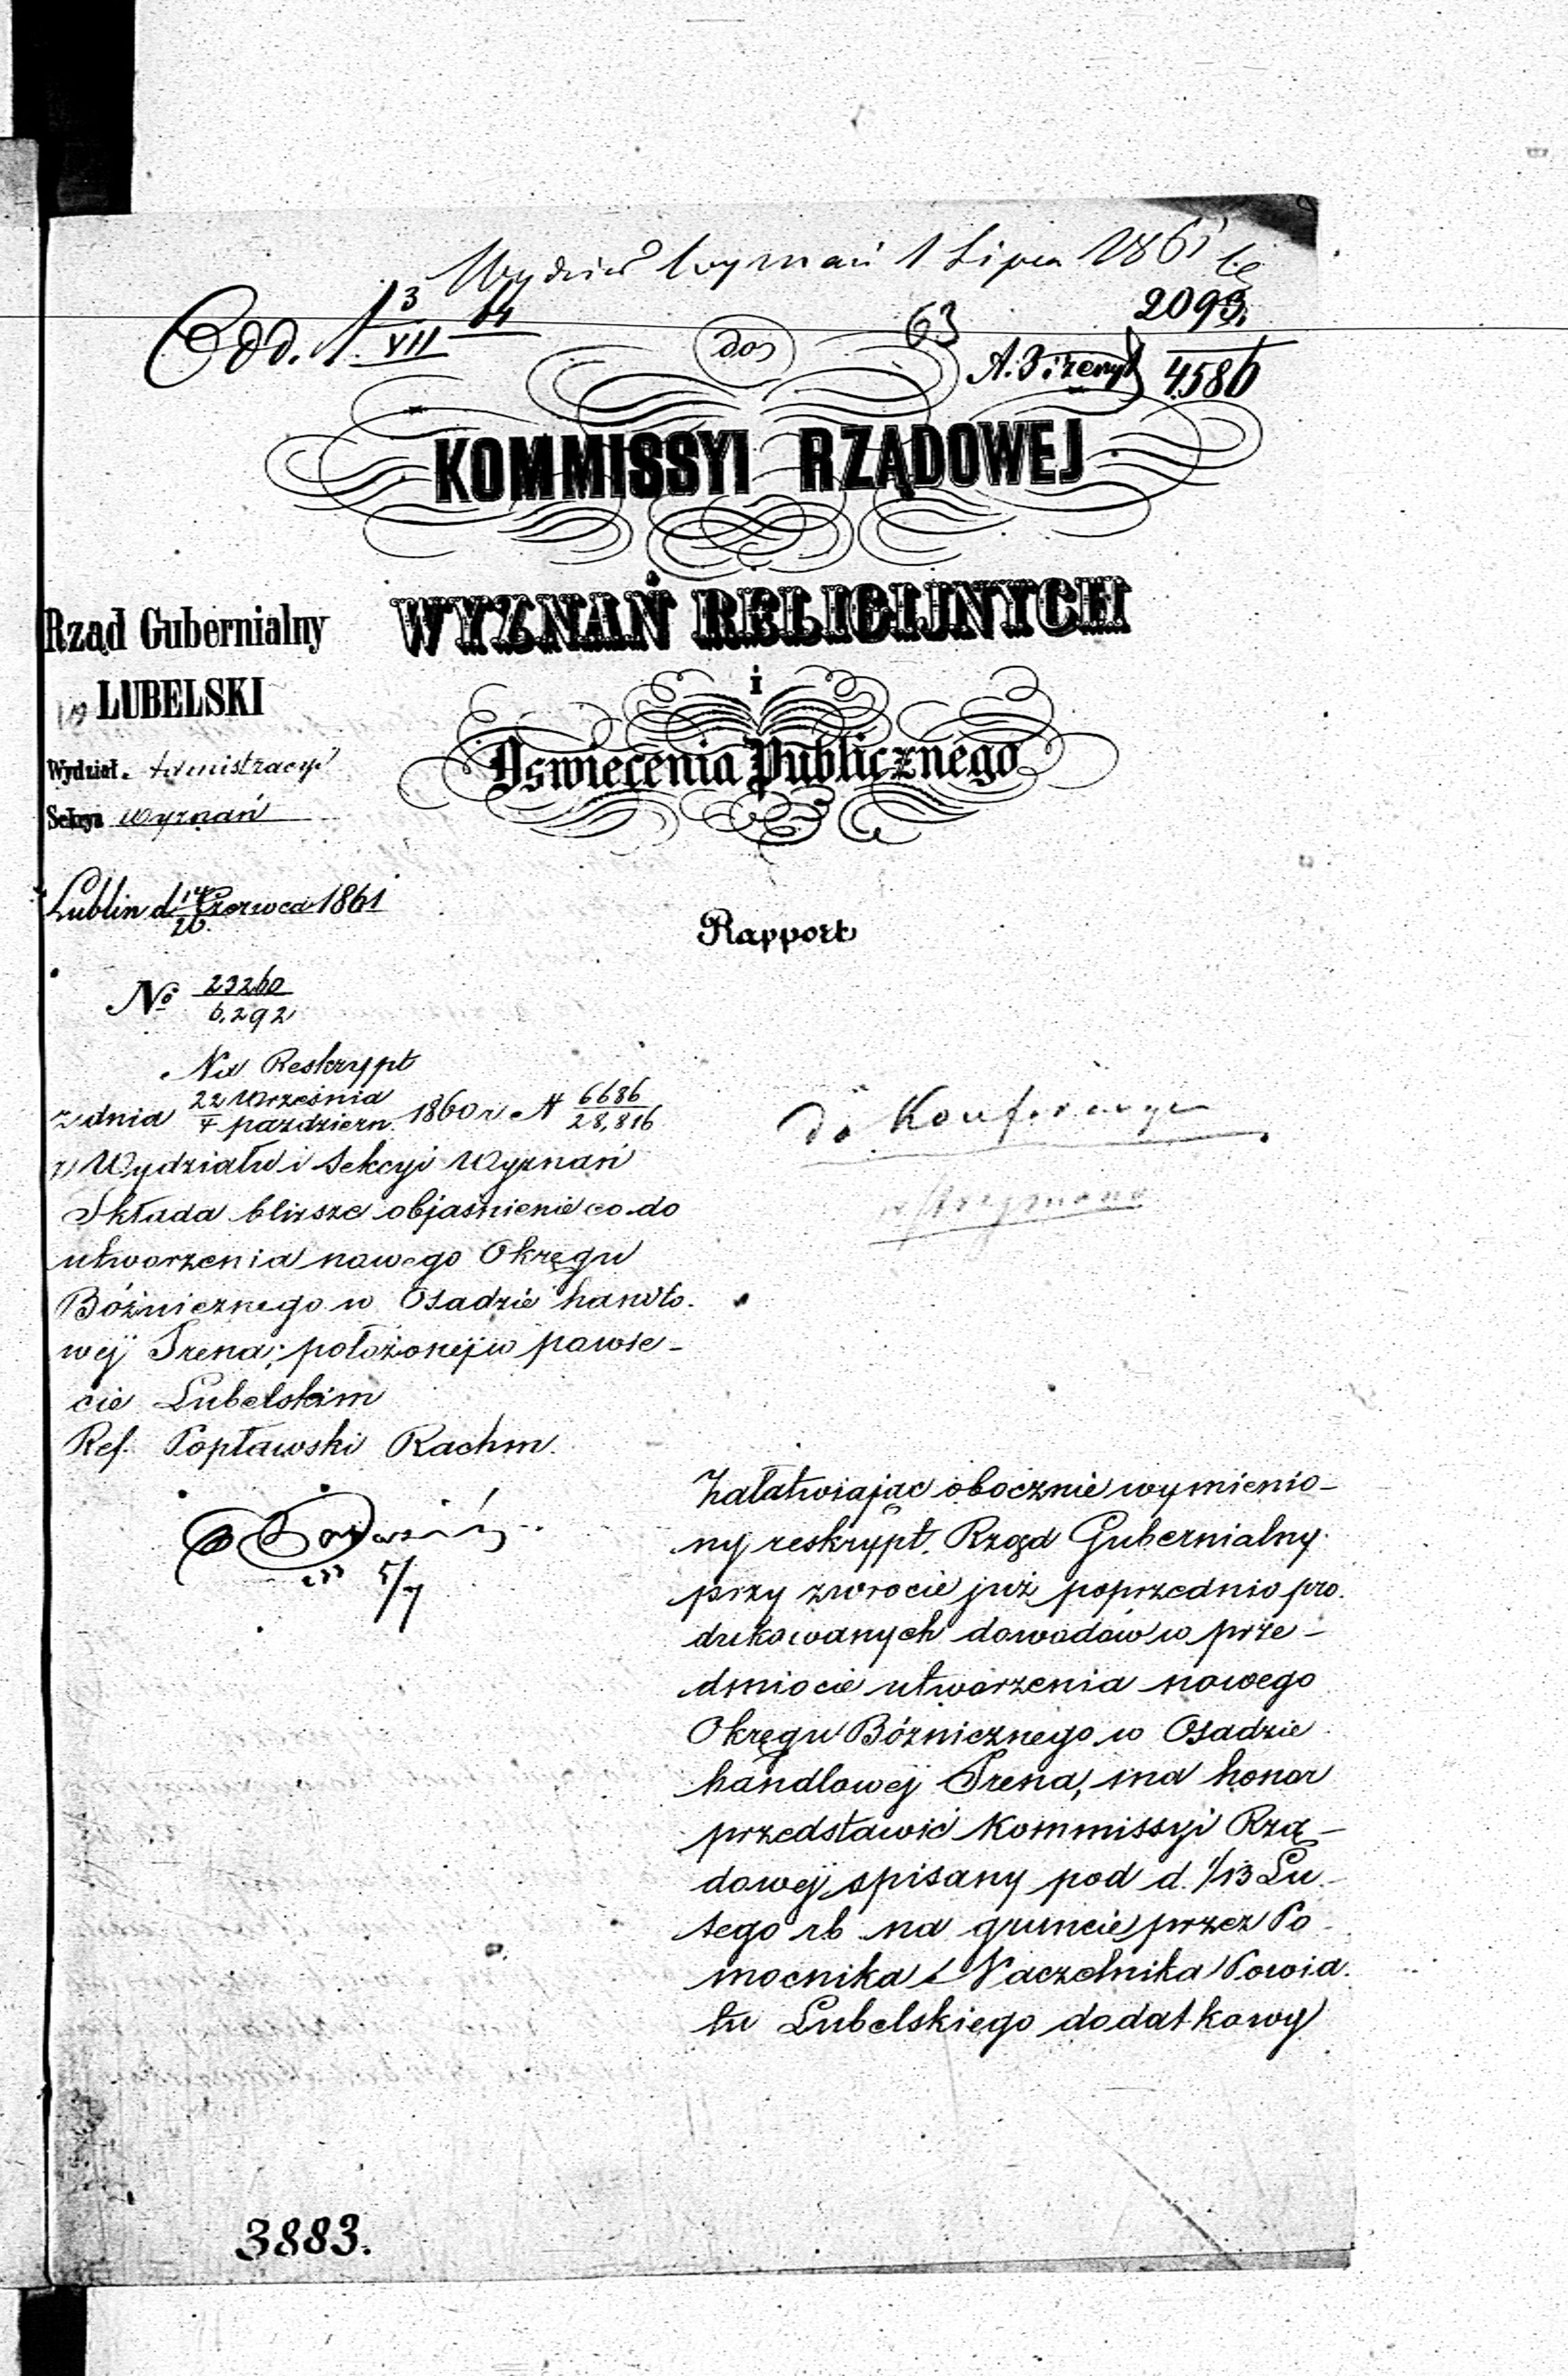 Wydział Wyznań 1 Lipca 1861
Odd. 3/VII 64
63
2093
4586
do
KOMMISSYI RZĄDOWEJ
WYZNAŃ RELIGIJNYCH
i
Oświecenia Publicznego
Rząd Gubernialny
LUBELSKI
Wydział Administracyi
Sekcya Wyznań
Lublin d 14/26 Czerwca 1861
Rapport
No 23260/6,292
Na Reskrypt
z dnia 22 Września/4 październ. 1860 r N 6686/28,816
z Wydziału i Sekcyi Wyznań
Składa bliższe objaśnienie co do
utworzenia nowego Okręgu
Bóżnicznego w Osadzie handlo-
wej Irena; położonej w powie-
cie Lubelskim
Ref. Popławski Rachm.
5/7
do Konferencyi
wstrzymano
Załatwiając obocznie wymienio-
ny reskrypt, Rząd Gubernialny
przy zwrocie już poprzednio pro-
dukowanych dowodów w prze-
dmiocie utworzenia nowego
Okręgu Bóżnicznego w Osadzie
handlowej Irena, ma honor
przedstawić Kommissyi Rzą-
dowej spisany pod d. 1/13 Lu-
tego rb na gruncie przez Po-
mocnika Naczelnika Powia-
tu Lubelskiego dodatkowy
3883.